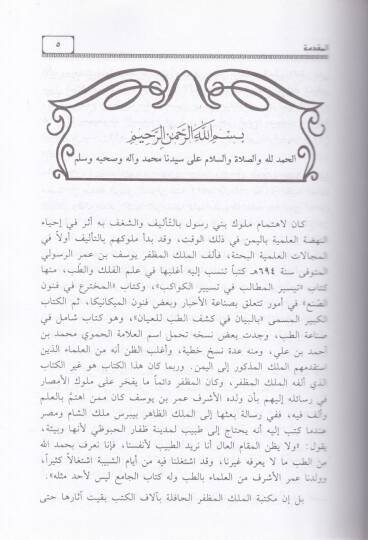 المقدمة
٥
بسم الله الرحمن الرحيم
الحمد لله والصلاة والسلام على سيدنا محمد وآله وصحبه وسلم
كان لاهتمام ملوك بني رسول بالتأليف والشغف به أثر في إحياء
النهضة العلمية باليمن في ذلك الوقت، وقد بدأ ملوكهم بالتأليف أولاً في
المجالات العلمية البحتة، فألف الملك المظفر يوسف بن عمر الرسولي
المتوفى سنة ٦٩٤هـ كتباً تنسب إليه أغلبها في علم الفلك والطب، منها
كتاب «تيسير المطالب في تسيير الكواكب»، وكتاب «المخترع في فنون
الصنع» في أمور تتعلق بصناعة الأحبار وبعض فنون الميكانيكا، ثم الكتاب
الكبير المسمى «بالبيان في كشف الطب للعيان»، وهو كتاب شامل في
صناعة الطب، وجدت بعض نسخه تحمل اسم العلامة الحموي محمد بن
أحمد بن علي، ومنه عدة نسخ خطية، وأغلب الظن أنه من العلماء الذين
استقدمهم الملك المذكور إلى اليمن. وربما كان هذا الكتاب هو غير الكتاب
الذي ألفه الملك المظفر، وكان المظفر دائماً ما يفخر على ملوك الأمصار
في رسائله إليهم بأن ولده الأشرف عمر بن يوسف كان ممن اهتم بالعلم
وألف فيه، ففي رسالة بعثها إلى الملك الظاهر بيبرس ملك الشام ومصر
عندما كتب إليه أنه يحتاج إلى طبيب لمدينة ظفار الحبوظي لأنها وبيئة،
يقول: «ولا يظن المقام العال أنا نريد الطبيب لأنفسنا، فإنا نعرف بحمد الله
من الطب ما لا يعرفه غيرنا، وقد اشتغلنا فيه من أيام الشبيبة اشتغالاً كثيراً،
وولدنا عمر الأشرف من العلماء بالطب وله كتاب الجامع ليس لأحد مثله».
بل إن مكتبة الملك المظفر الحافلة بآلاف الكتب بقيت آثارها حتى